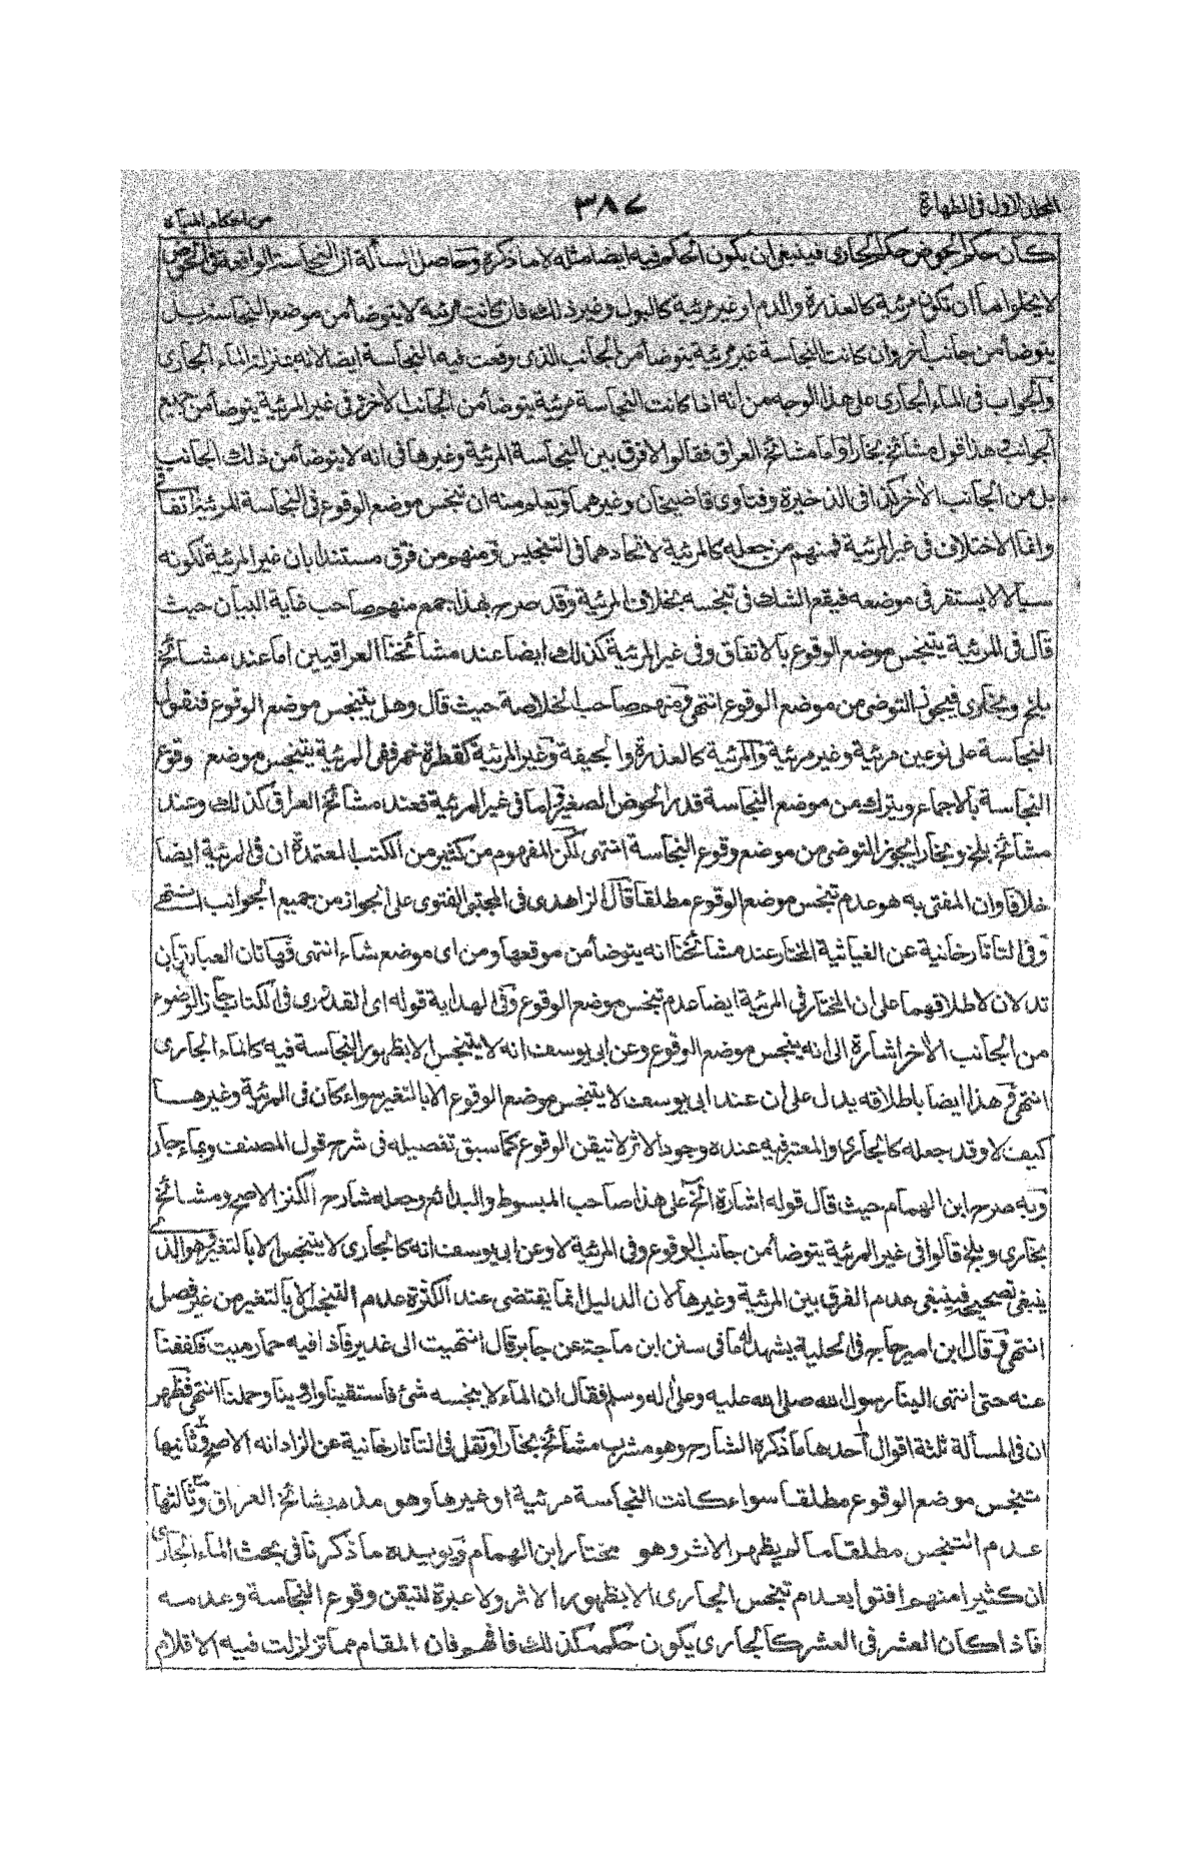 المجلد الاول فى الطهارة
٣٨٧
من احكام المياه
كان حكم الحوض حكم الجارى فينبغى ان يكون الحكم فيه ايضا مثله لا ما ذكره وحاصل المسألة ان النجاسة الواقعة فى الحوض
لا يخلو اما ان تكون مرئية كالعذرة والدم او غير مرئية كالبول وغير ذلك فان كانت مرئية لا يتوضأ من موضع النجاسة بل
يتوضأ من جانب اخر وان كانت النجاسة غير مرئية يتوضأ من الجانب الذى وقعت فيه النجاسة ايضا لانه بمنزلة الماء الجارى
والجواب فى الماء الجارى على هذا الوجه من انه اذا كانت النجاسة مرئية يتوضأ من الجانب الأخر وفى غير المرئية يتوضأ من جميع
الجوانب وهذا قول مشائخ بخارا واما مشائخ العراق فقالوا لا فرق بين النجاسة المرئية وغيرها فى انه لا يتوضأ من ذلك الجانب
بل من الجانب الأخر كذا فى الذخيرة وفتاوى قاضيخان وغيرهما ويعلم منه ان تنجس موضع الوقوع فى النجاسة المرئية اتفاقى
وانما الاختلاف فى غير المرئية فمنهم من جعله كالمرئية لاتحادهما فى التنجيس ومنهم من فرق مستندا بان غير المرئية لكونه
سيالا لا يستقر فى موضعه فيقع الشك فى تنجسه بخلاف المرئية وقد صرح بهذا جمع منهم صاحب غاية البيان حيث
قال فى المرئية يتنجس موضع الوقوع بالاتفاق وفى غير المرئية كذلك ايضا عند مشائخنا العراقيين اما عند مشائخ
بلخ وبخارى فيجوز التوضى من موضع الوقوع انتهى ومنهم صاحب الخلاصة حيث قال وهل يتنجس موضع الوقوع فنقول
النجاسة على نوعين مرئية وغير مرئية والمرئية كالعذرة والجيفة وغير المرئية كقطرة خمر ففى المرئية يتنجس موضع وقوع
النجاسة بالاجماع ويترك من موضع النجاسة قدر الحوض الصغير واما فى غير المرئية فعند مشائخ العراق كذلك وعند
مشائخ بلخ وبخارا يجوز التوضى من موضع وقوع النجاسة انتهى لكن المفهوم من كثير من الكتب المعتمدة ان فى المرئية ايضا
خلافا وان المفتى به هو عدم تنجس موضع الوقوع مطلقا قال الزاهدى فى المجتبى الفتوى على الجواز من جميع الجوانب انتهى
وفى التاتارخانية عن الغياثية المختار عند مشائخنا انه يتوضأ من موقعها ومن اى موضع شاء انتهى فهاتان العبارتان
تدلان لاطلاقهما على ان المختار فى المرئية ايضا عدم تنجس موضع الوقوع وفى الهداية قوله اى القدورى فى الكتاب جاز الوضوء
من الجانب الأخر اشارة الى انه ينجس موضع الوقوع وعن ابى يوسف انه لا يتنجس الا بظهور النجاسة فيه كالماء الجارى
انتهى وهذا ايضا باطلاقه يدل على ان عند ابى يوسف لا يتنجس موضع الوقوع الا بالتغير سواء كان فى المرئية وغيرها
كيف لا وقد جعله كالجارى والمعتبر فيه عنده وجود الاثر لا تيقن الوقوع كما سبق تفصيله فى شرح قول المصنف وبماء جار
وبه صرح ابن الهمام حيث قال قوله اشارة الخ على هذا صاحب المبسوط والبدائع وجعله شارح الكنز الاصح ومشائخ
بخارى وبلخ قالوا فى غير المرئية يتوضأ من جانب الوقوع وفى المرئية لا وعن ابى يوسف انه كالجارى لا يتنجس الا بالتغير وهو الذى
ينبغى تصحيحه فينبغى عدم الفرق بين المرئية وغيرها لان الدليل انما يقتضى عند الكثرة عدم التنجس الا بالتغير من غير فصل
انتهى وقال ابن امير حاج فى الحلية يشهد له ما فى سنن ابن ماجة عن جابر قال انتهيت الى غدير فاذا فيه حمار ميت فكففنا
عنه حتى انتهى الينا رسول الله صلى الله عليه وعلى اله وسلم فقال ان الماء لا ينجسه شئ فاستقينا واروينا وحملنا انتهى فظهر
ان فى المسألة ثلثة اقوال احدها ما ذكره الشارح وهو مشرب مشائخ بخارا ونقل فى التاتارخانية عن الزاد انه الاصح وثانيها
متنجس موضع الوقوع مطلقا سواء كانت النجاسة مرئية او غيرها وهو مذهب مشائخ العراق وثالثها
عدم التنجس مطلقا ما لم يظهر الاثر وهو مختار ابن الهمام ويؤيده ما ذكرنا فى بحث الماء الجارى
ان كثيرا منهم افتوا بعدم تنجس الجارى الا بظهور الاثر ولا عبرة لتيقن وقوع النجاسة وعدمه
فاذا كان العشر فى العشر كالجارى يكون حكمه كذلك فافهم فان المقام مما تزلزلت فيه الاقلام